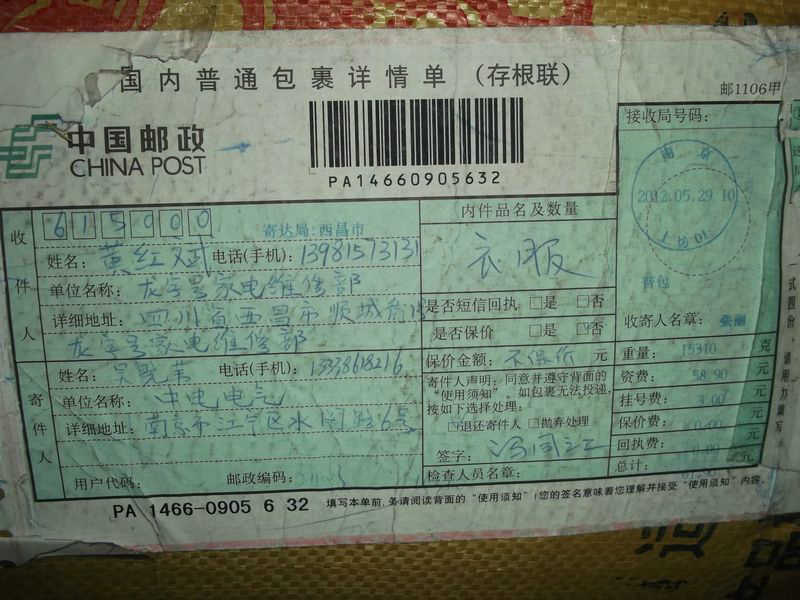 国内普通包裹详情单（存根联）
邮1106甲
中国邮政
CHINA POST
PA14660905632
接收局号码:
南京
2012.05.29 10
收件人
615000
寄达局:西昌市
姓名: 黄红斌 电话(手机): 13981573131
单位名称: 龙字号家电维修部
详细地址: 四川省西昌市顺城
龙字号家电维修部
寄件人
姓名: 电话(手机): 13338618216
单位名称: 中电电气
详细地址: 南京市江宁区水阁路6号
用户代码: 邮政编码:
内件品名及数量
衣服
是否短信回执 □是 □否
是否保价 □是 ☑否
保价金额: 不保价 元
寄件人声明: 同意并遵守背面的
“使用须知”。如包裹无法投递,
按如下选择处理:
□退还寄件人 □抛弃处理
签字:
检查人员名章:
普包
收寄人名章:
重量: 15310 克
资费: 58.90 元
挂号费: 3.00 元
保价费: 0.00 元
回执费: 元
总计: 元
PA 1466-0905 6 32 填写本单前,务请阅读背面的“使用须知”!您的签名意味着您理解并接受“使用须知”内容。
一式四份，请用力填写